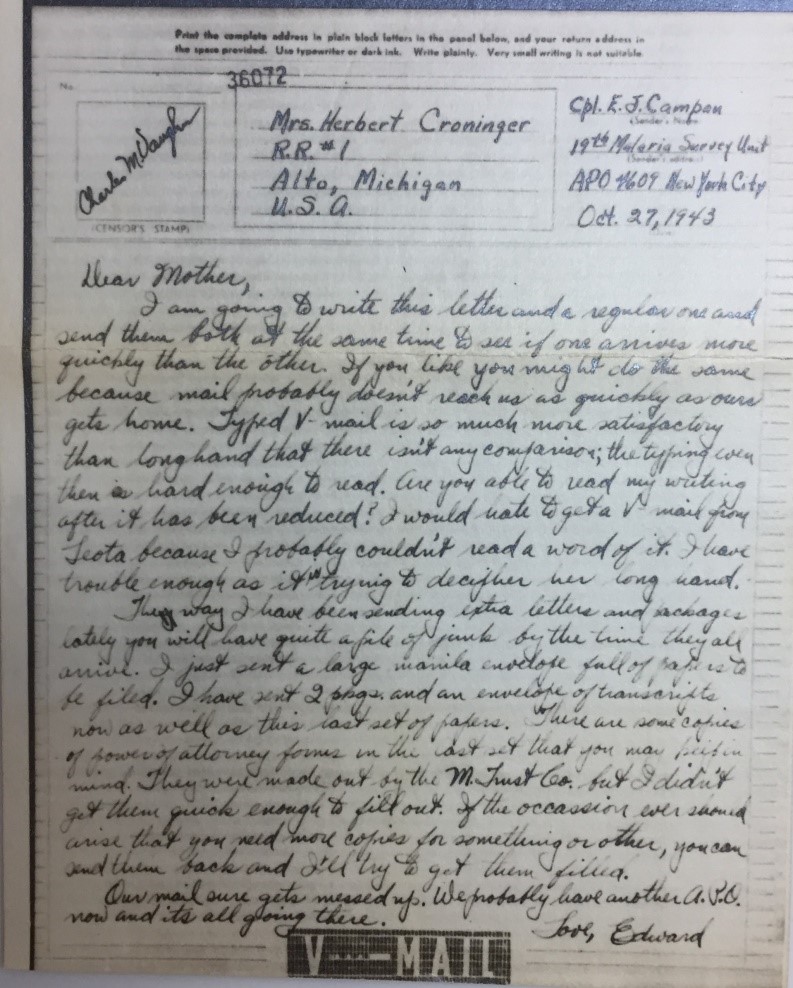 Print the complete address in plain block letters in the panel below, and your return address in
the space provided. Use typewriter or dark ink. Write plainly. Very small writing is not suitable.
No.
36072
Mrs. Herbert Croninger
R.R. #1
Alto, Michigan
U.S.A.
Cpl. E. J. Campau
(Sender's Name)
19th Malaria Survey Unit
(Sender's address)
APO 4609 New York City
Oct. 27, 1943
(CENSOR'S STAMP)
Dear Mother,
I am going to write this letter and a regular one and
send them both at the same time to see if one arrives more
quickly than the other. If you like you might do the same
because mail probably doesn't reach us as quickly as ours
gets home. Typed V-mail is so much more satisfactory
than longhand that there isn't any comparison; the typing even
then is hard enough to read. Are you able to read my writing
after it has been reduced? I would hate to get a V-mail from
Leota because I probably couldn't read a word of it. I have
trouble enough as it is trying to decipher her long hand.
They way I have been sending extra letters and packages
lately you will have quite a pile of junk by the time they all
arrive. I just sent a large manila envelope full of papers to
be filed. I have sent 2 pkgs. and an envelope of transcripts
now as well as this last set of papers. There are some copies
of power of attorney forms in the last set that you may keep in
mind. They were made out by the M. Trust Co. but I didn't
get them quick enough to fill out. If the occassion ever should
arise that you need more copies for something or other, you can
send them back and I'll try to get them filled.
Our mail sure gets messed up. We probably have another A.P.O.
now and it's all going there.
Love, Edward
V----MAIL